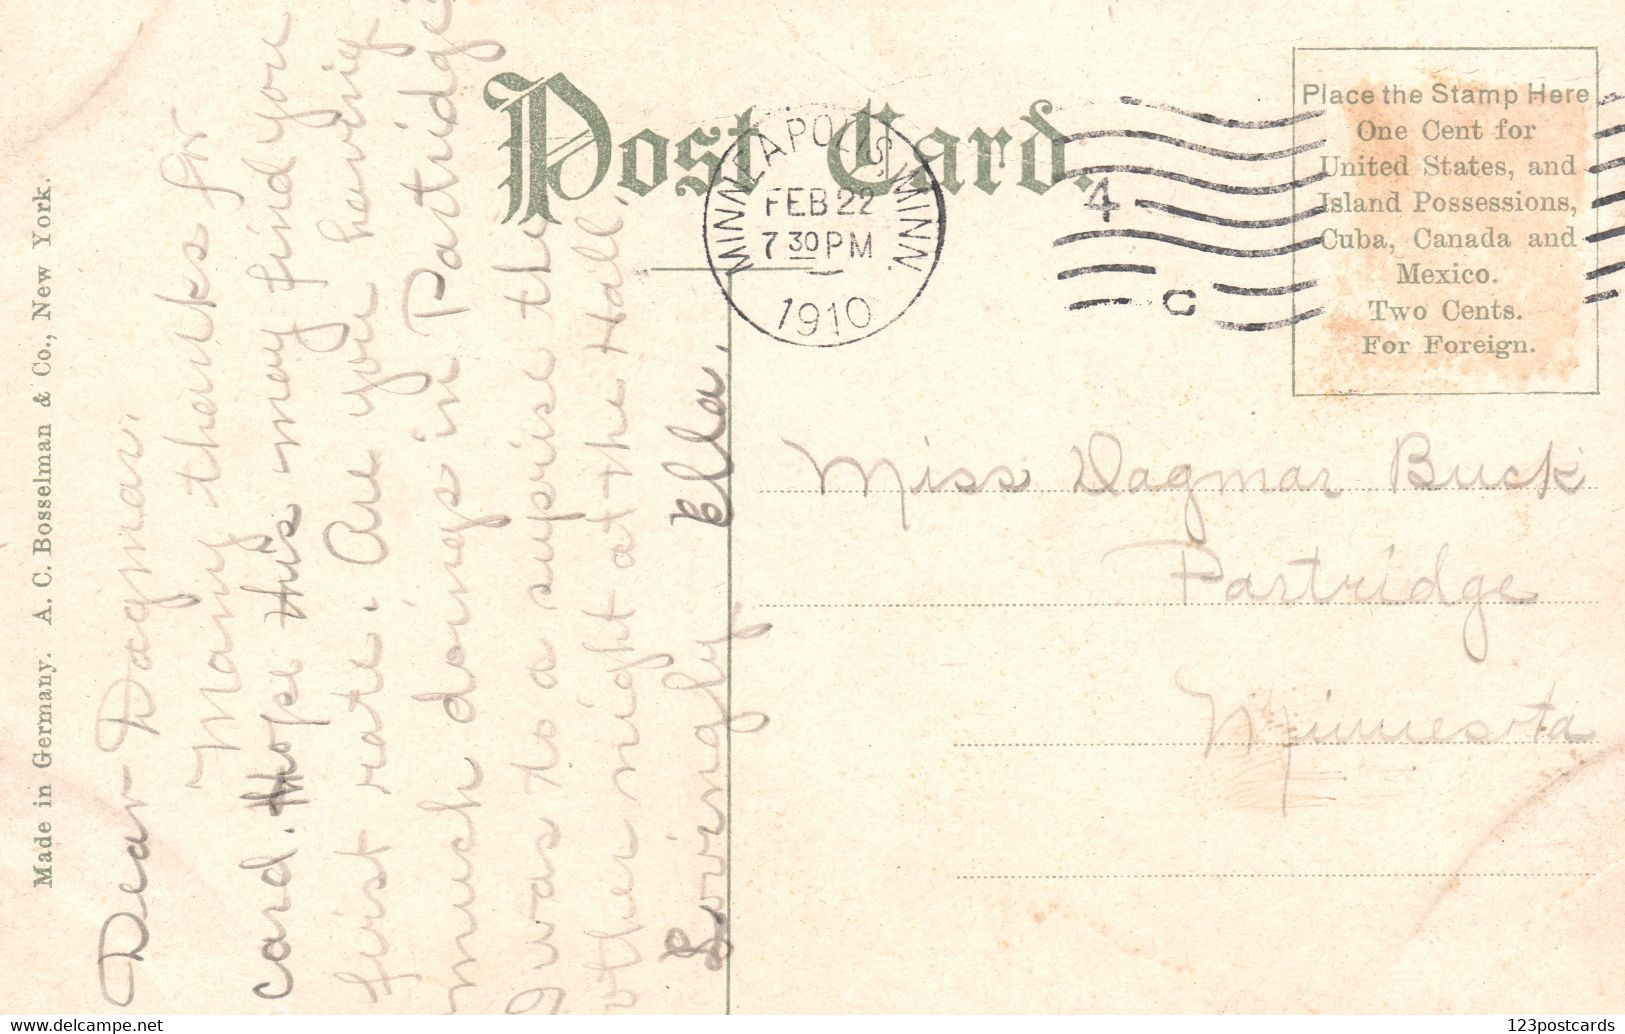 Post Card.
MINNEAPOLIS, MINN.
FEB 22
7 30 PM
1910
4
C
Place the Stamp Here
One Cent for
United States, and
Island Possessions,
Cuba, Canada and
Mexico.
Two Cents.
For Foreign.
Made in Germany. A. C. Bosselman & Co., New York.
Dear Dagmar.
Many thanks for
card. Hope this may find you
first rate. Are you having
much doings in Partridge?
I was to a suprise the
other night at the Hall.
Lovingly, Ella.
Miss Dagmar Buck
Partridge
Minnesota
123postcards
www.delcampe.net